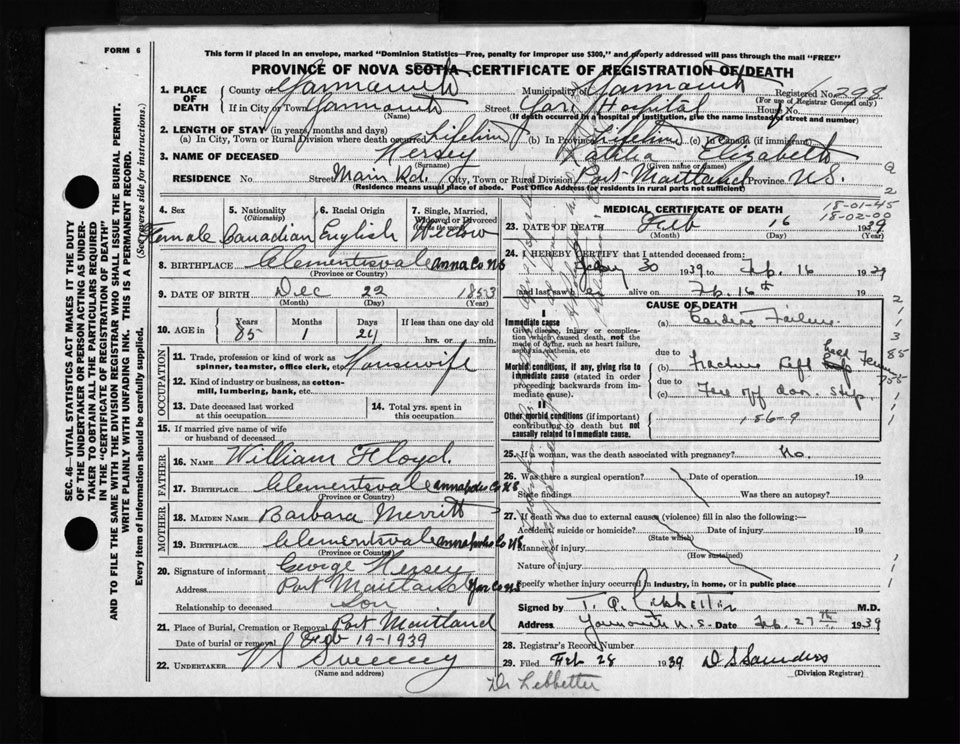 FORM 6
This form if placed in an envelope, marked "Dominion Statistics—Free, penalty for improper use $300," and properly addressed will pass through the mail "FREE"
PROVINCE OF NOVA SCOTIA—CERTIFICATE OF REGISTRATION OF DEATH
1. PLACE OF DEATH
County of Yarmouth Municipality of Yarmouth Registered No. 298
(For use of Registrar General only)
If in City or Town Yarmouth Street Yar. Hospital House No.
(Name) (If death occurred in a hospital or institution, give the name instead of street and number)
2. LENGTH OF STAY (in years, months and days)
(a) In City, Town or Rural Division where death occurred Lifetime (b) In Province Lifetime (c) In Canada (if immigrant)
3. NAME OF DECEASED Kersey Elizabeth
(Surname) (Given name or names)
RESIDENCE No. Street Main Rd. City, Town or Rural Division Port Maitland Province N.S.
(Residence means usual place of abode. Post Office Address for residents in rural parts not sufficient)
4. Sex 5. Nationality (Citizenship) 6. Racial Origin 7. Single, Married, Widowed or Divorced
Female Canadian English Widow
8. BIRTHPLACE Clementsvale Anna Co NS
(Province or Country)
9. DATE OF BIRTH Dec 22 1853
(Month) (Day) (Year)
10. AGE in Years Months Days If less than one day
85 1 24 hrs. or min.
OCCUPATION
11. Trade, profession or kind of work as spinner, teamster, office clerk, etc. Housewife
12. Kind of industry or business, as cotton-mill, lumbering, bank, etc.
13. Date deceased last worked at this occupation
14. Total yrs. spent in this occupation
15. If married give name of wife or husband of deceased
FATHER
16. NAME William Floyd.
17. BIRTHPLACE Clementsvale Annapolis Co NS
(Province or Country)
MOTHER
18. MAIDEN NAME Barbara Merritt
19. BIRTHPLACE Clementsvale Annapolis Co NS
(Province or Country)
20. Signature of informant George Kersey
Address Port Maitland Yar Co NS
Relationship to deceased Son
21. Place of Burial, Cremation or Removal Port Maitland
Date of burial or removal Feb 19-1939
22. UNDERTAKER V S Sweeney
(Name and address)
MEDICAL CERTIFICATE OF DEATH
18-01-45
18-02-00
23. DATE OF DEATH Feb 16 1939
(Month) (Day) (Year)
24. I HEREBY CERTIFY that I attended deceased from:
30 1939 to Feb. 16 1939
and last saw alive on Feb. 16th 19
CAUSE OF DEATH
I
Immediate cause
Give disease, injury or complication which caused death, not the mode of dying, such as heart failure, asphyxia, asthenia, etc
(a) Cardiac Failure.
due to
Morbid conditions, if any, giving rise to immediate cause (stated in order proceeding backwards from immediate cause).
(b) Fracture Left Femur
due to
(c) Fell off door step.
II
Other morbid conditions (if important) contributing to death but not causally related to immediate cause.
186-9
25. If a woman, was the death associated with pregnancy? No.
26. Was there a surgical operation? Date of operation 19
State findings Was there an autopsy?
27. If death was due to external causes (violence) fill in also the following:—
Accident, suicide or homicide? Date of injury 19
(State which)
Manner of injury
(How sustained)
Nature of injury
Specify whether injury occurred in industry, in home, or in public place
Signed by M.D.
Address Yarmouth N.S. Date Feb. 27th 1939
28. Registrar's Record Number
29. Filed Feb 28 1939 D S Saunders
(Division Registrar)
Dr Lebbetter
SEC. 46—VITAL STATISTICS ACT MAKES IT THE DUTY
OF THE UNDERTAKER OR PERSON ACTING AS UNDERTAKER
TO OBTAIN ALL THE PARTICULARS REQUIRED
IN THE "CERTIFICATE OF REGISTRATION OF DEATH"
AND TO FILE THE SAME WITH THE DIVISION REGISTRAR WHO SHALL ISSUE THE BURIAL PERMIT.
WRITE PLAINLY WITH UNFADING INK. THIS IS A PERMANENT RECORD.
Every item of information should be carefully supplied. (See reverse side for instructions.)